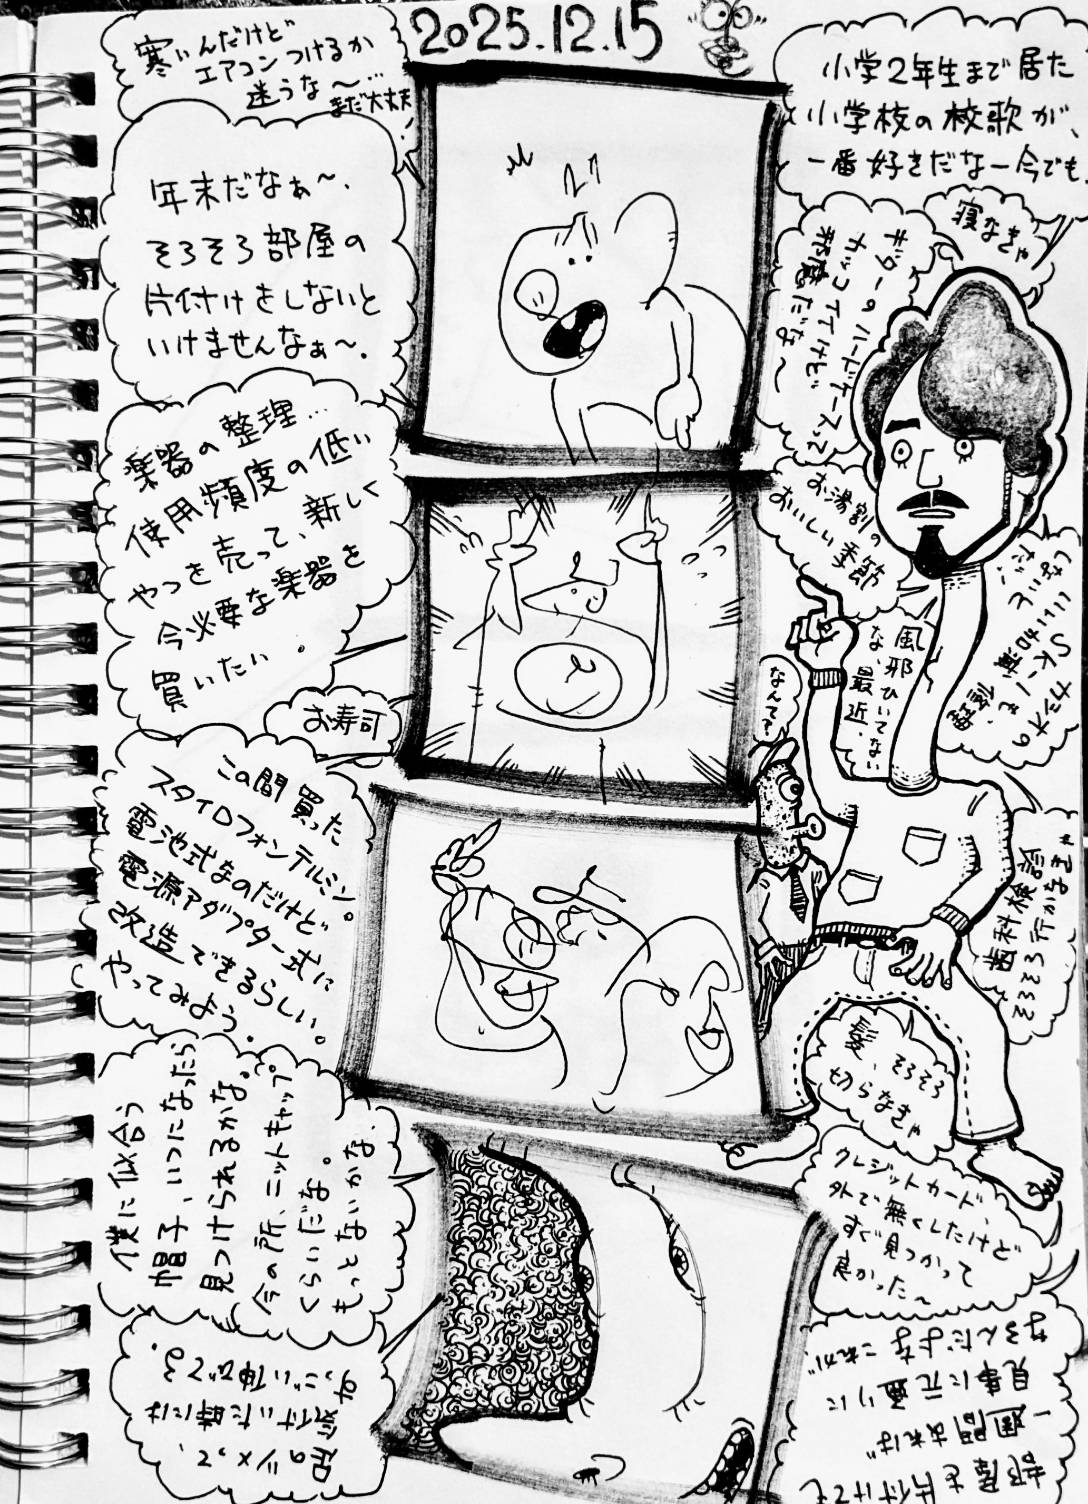 2025.12.15
寒いんだけど
エアコンつけるか
迷うな〜…
まだ大丈夫
年末だなぁ〜、
そろそろ部屋の
片付けをしないと
いけませんなぁ〜、
楽器の整理…
使用頻度の低い
やつを売って、新しく
今必要な楽器を
買いたい。
お寿司
この間買った
スタイロフォンテルミン。
電池式なのだけど
電源アダプター式に
改造できるらしい。
やってみよう。
僕に似合う
帽子、いつになったら
見つけられるかな。
今の所、ニットキャップ
くらいだな。
もっとないかな、
足のツメって、
気付いた時には
すっごい伸びてる、
小学2年生まで居た
小学校の校歌が、
一番好きだなー今でも、
寝なきゃ
ギターのハードケースって
カッコイイけど
邪魔だな〜
お湯割の
おいしい季節
風邪ひいてない
な、最近、
なんて?
カシオの
SK-1を、
歯科検診
そろそろ行かなきゃ
髪、そろそろ
切らなきゃ
クレジットカード、
外で無くしたけど
すぐ見つかって
良かった〜
部屋を片付けても
一週間あれば
見事に元通りに
なるんだよな これが、